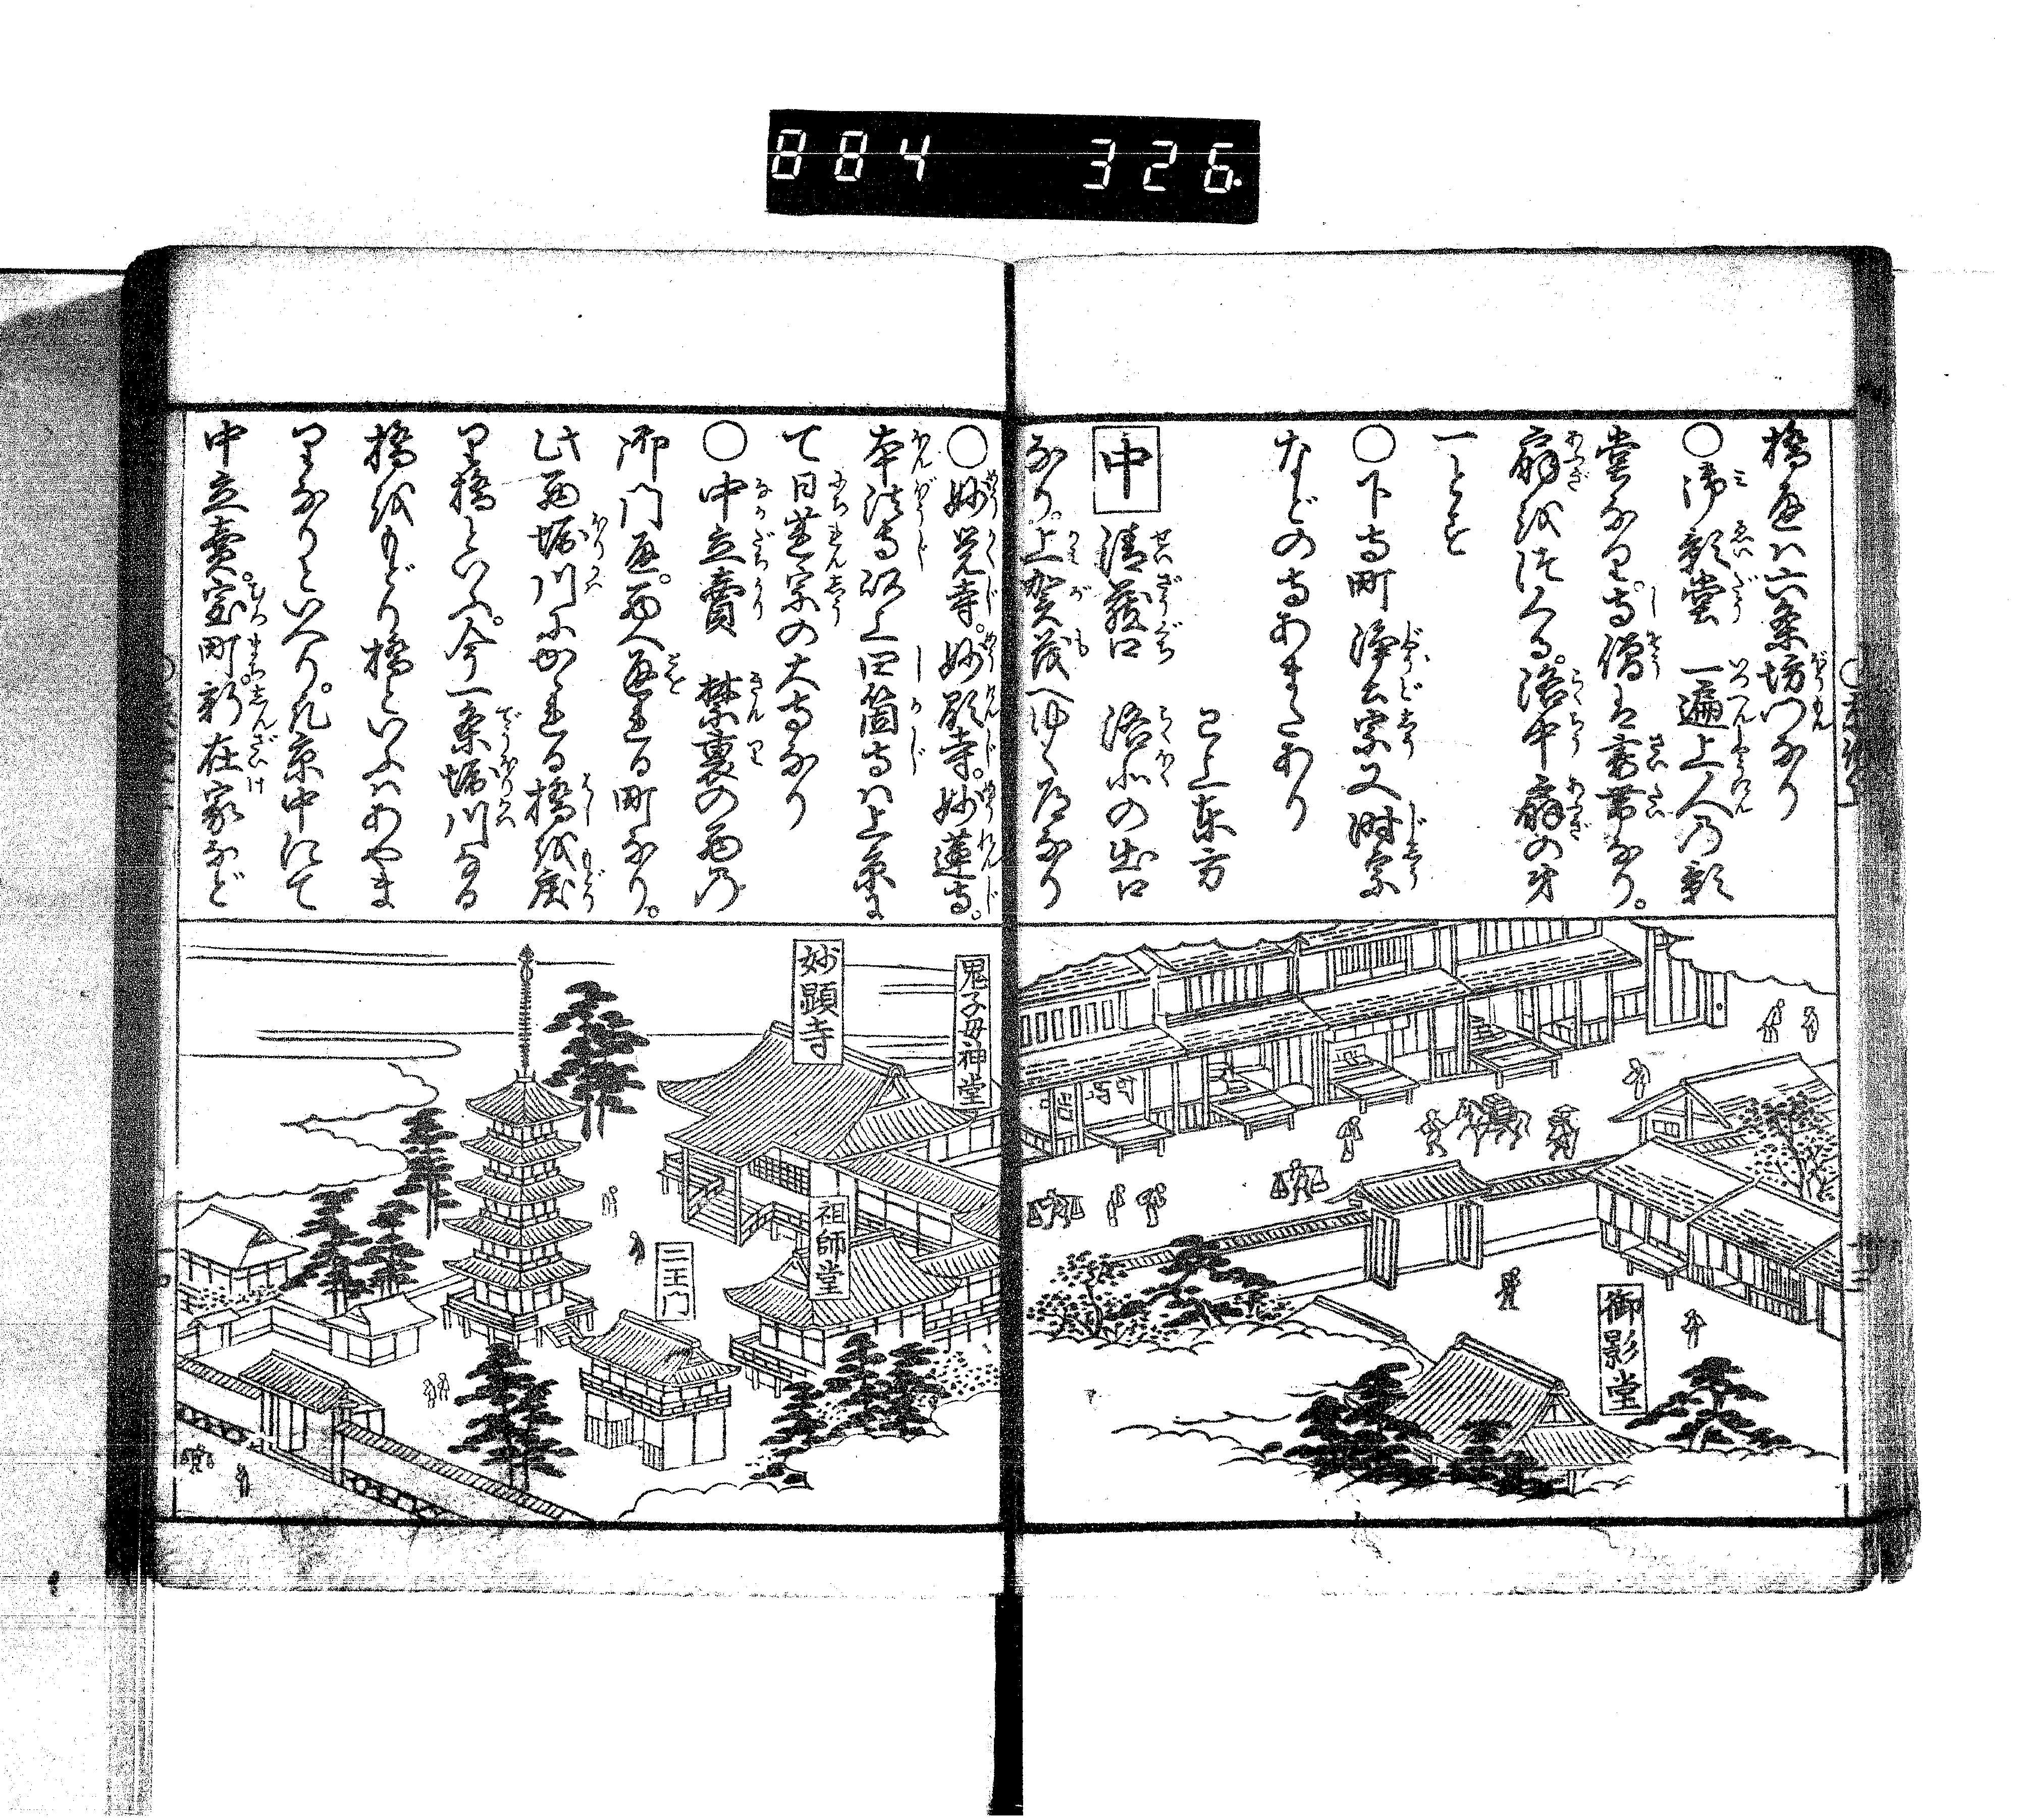 884 326
橋通ハ六条坊門なり
○御影堂 一遍上人乃影
堂なり。寺僧は妻帯なり。
扇をつくる。洛中扇の才
一とす
○下寺町 浄土宗又時宗
などの寺あまたあり
已上東方
中 清蔵口 洛北の出口
なり。上賀茂へ行く道なり
○妙覚寺。妙顕寺。妙蓮寺。
本法寺以上四箇寺ハ上京に
て日蓮宗の大寺なり
○中立賣 禁裏の西乃
御門通。西へ通る町なり。
此西堀川にかゝる橋を戻
り橋といふ。今一条堀川なる
橋をもどり橋といふハあやま
りなりといへり。凡京中にて
中立賣。室町。新在家など
御影堂
鬼子母神堂
妙顕寺
祖師堂
二王門